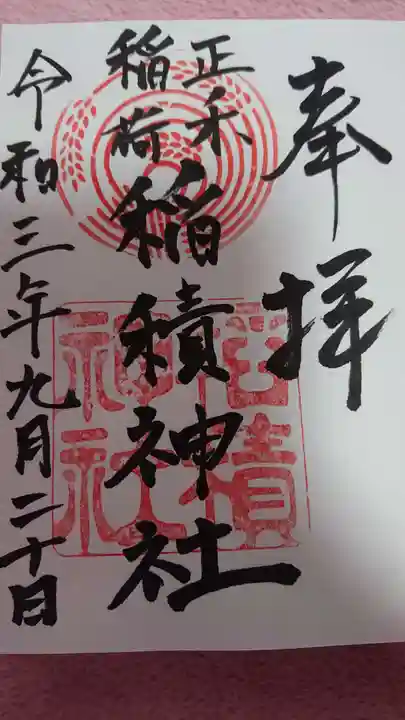 奉拝
正ノ木
稲荷
稲積神社
令和三年九月二十日
稲積
神社